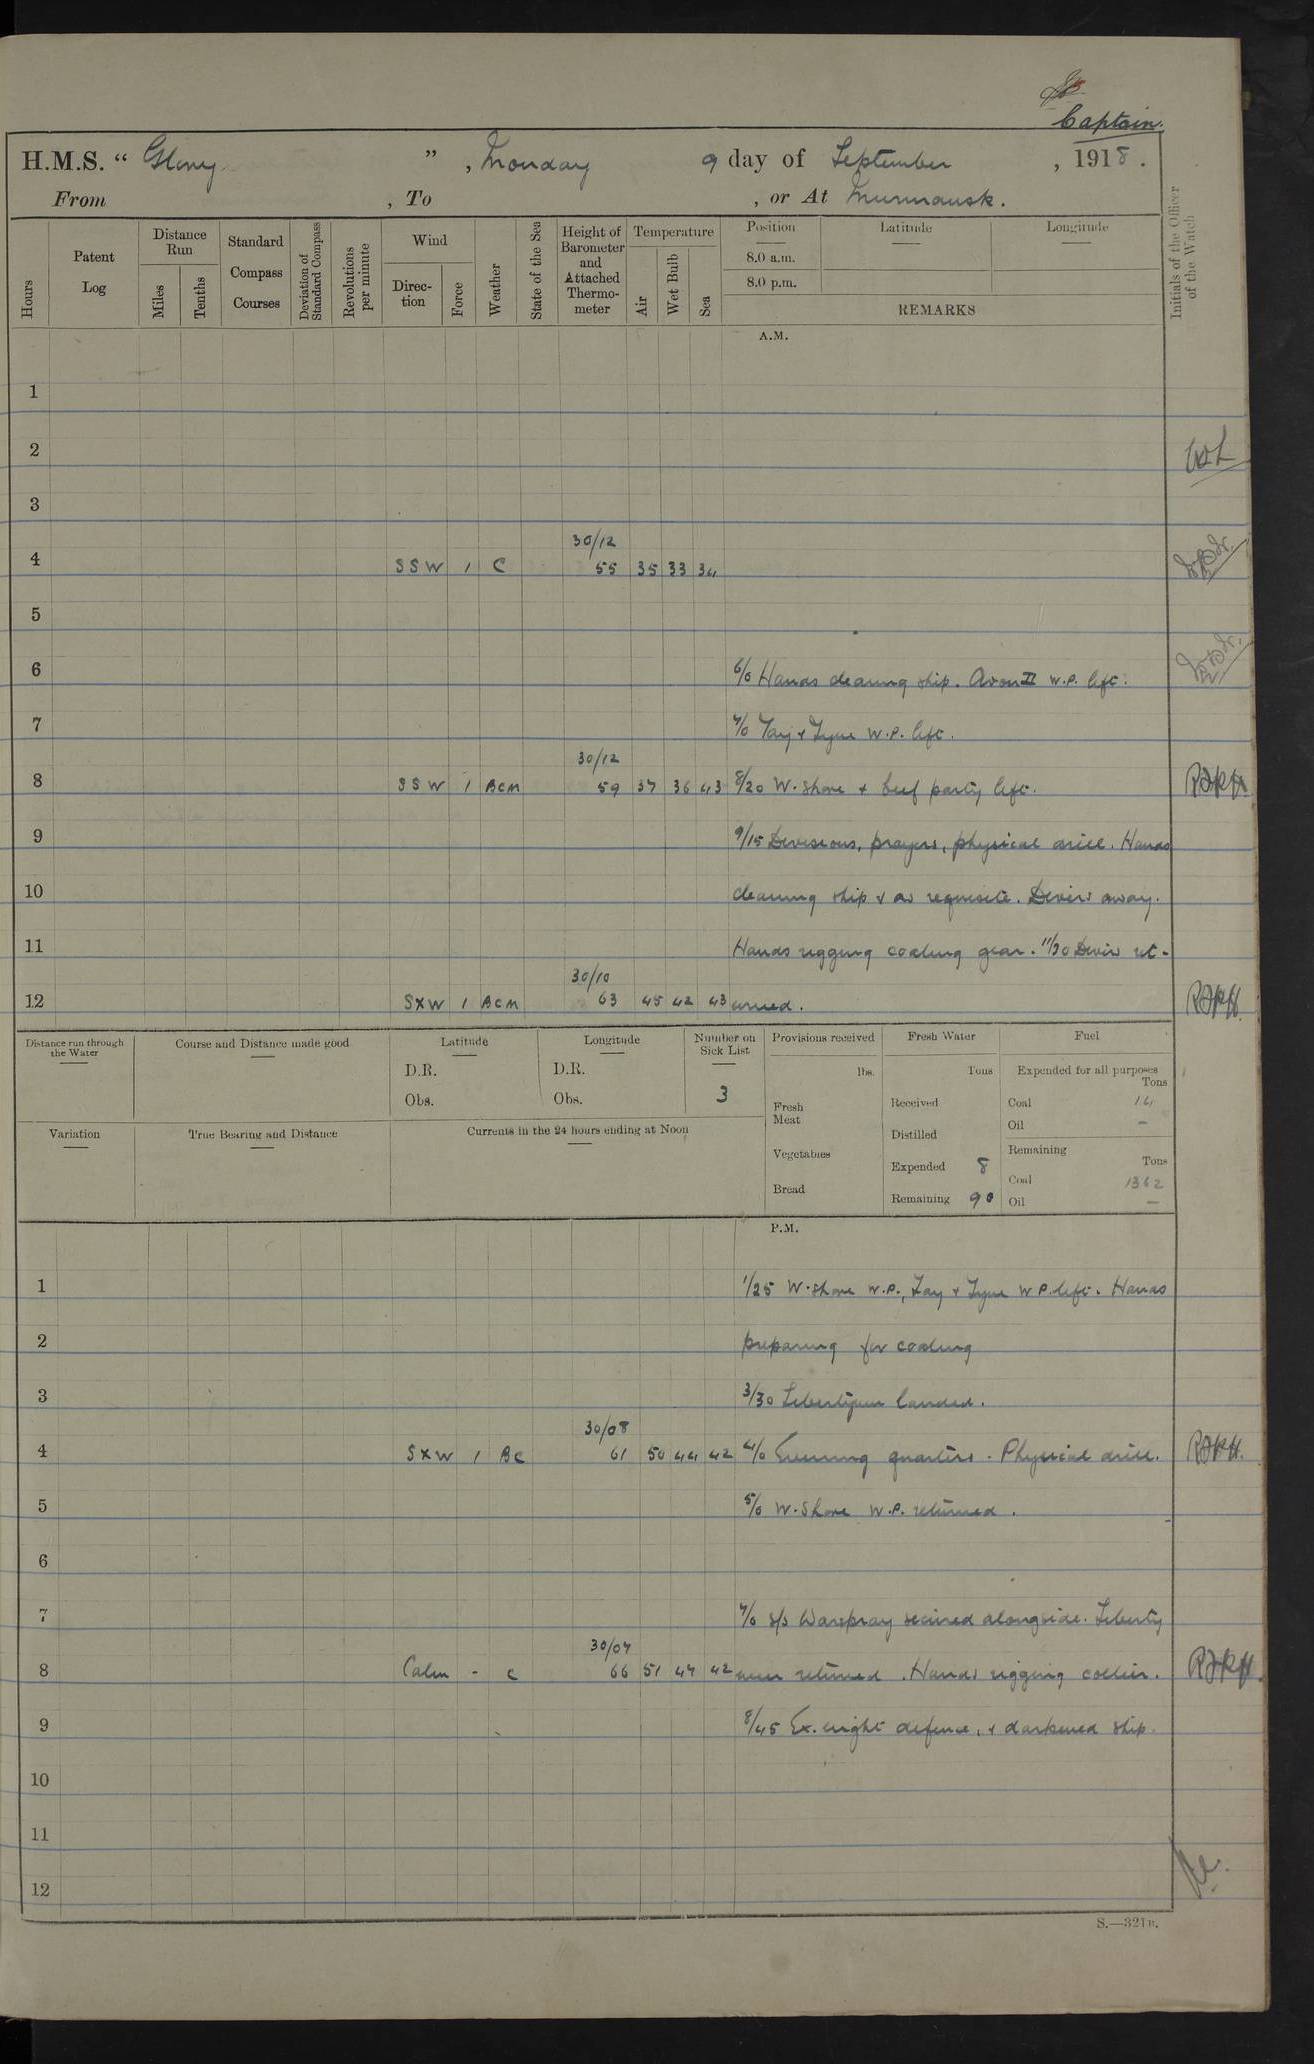 Captain.
H.M.S. “ Glory ” , Monday 9 day of September , 1918 .
From , To , or At Murmansk.
Hours
Patent Log
Distance Run
Miles
Tenths
Standard Compass Courses
Deviation of Standard Compass
Revolutions per minute
Wind
Direction
Force
Weather
State of the Sea
Height of Barometer and Attached Thermometer
Temperature
Air
Wet Bulb
Sea
Position
8.0 a.m.
8.0 p.m.
Latitude
Longitude
REMARKS
Initials of the Officer of the Watch
A.M.
1
2
3
30/12
4 SSW 1 C 55 35 33 34
5
6 6/0 Hands cleaning ship. Avon II W.P. left.
7 7/0 Tay & Tyne W.P. left.
30/12
8 SSW 1 BCM 59 37 36 43 8/20 W. Shore & beef party left. RJPH
9 9/15 Divisions, prayers, physical drill. Hands
10 cleaning ship & as requisite. Divers away.
11 Hands rigging coaling gear. 11/30 Divers ret-
30/10
12 SXW 1 BCM 63 45 42 43 urned. RJPH.
Distance run through the Water
Course and Distance made good
Latitude
D.R.
Obs.
Longitude
D.R.
Obs.
Number on Sick List
3
Provisions received
lbs.
Fresh Meat
Vegetables
Bread
Fresh Water
Tons
Received
Distilled
Expended 8
Remaining 90
Fuel
Expended for all purposes
Tons
Coal 14
Oil –
Remaining
Tons
Coal 1362
Oil –
Variation
True Bearing and Distance
Currents in the 24 hours ending at Noon
P.M.
1 1/25 W. Shore W.P., Tay & Tyne W.P. left. Hands
2 preparing for coaling
3 3/30 Libertymen landed.
30/08
4 SXW 1 BC 61 50 44 42 4/0 Evening quarters. Physical drill. RJPH.
5 5/0 W. Shore W.P. returned.
6
7 7/0 S/S Warspray secured alongside. Liberty
30/07
8 Calm - C 66 51 47 42 men returned. Hands rigging collier. RJPH.
9 8/45 Ex. night defence, & darkened ship.
10
11
12
S.—321B.